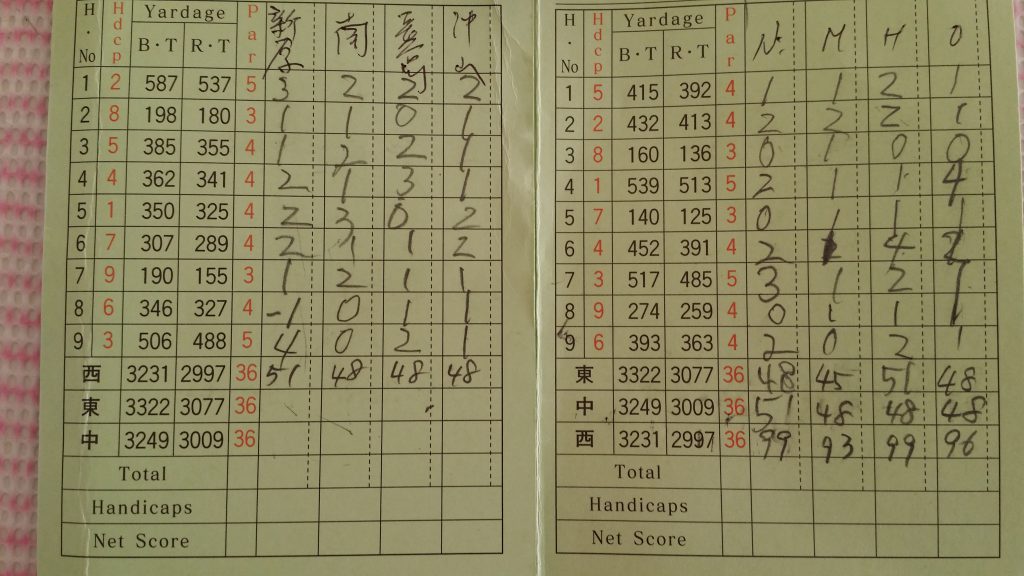 H・No Hdcp Yardage Par 新原 南 沖山
B・T R・T
1 2 587 537 5 3 2 2 2
2 8 198 180 3 1 1 0 1
3 5 385 355 4 1 2 2 1
4 4 362 341 4 2 1 3 1
5 1 350 325 4 2 3 0 2
6 7 307 289 4 2 1 1 2
7 9 190 155 3 1 2 1 1
8 6 346 327 4 -1 0 1 1
9 3 506 488 5 4 0 2 1
西 3231 2997 36 51 48 48 48
東 3322 3077 36
中 3249 3009 36
Total
Handicaps
Net Score
H・No Hdcp Yardage Par N. M H O
B・T R・T
1 5 415 392 4 1 1 2 1
2 2 432 413 4 2 2 2 1
3 8 160 136 3 0 1 0 0
4 1 539 513 5 2 1 1 4
5 7 140 125 3 0 1 1 1
6 4 452 391 4 2 1 4 2
7 3 517 485 5 3 1 2 1
8 9 274 259 4 0 1 1 1
9 6 393 363 4 2 0 2 1
東 3322 3077 36 48 45 51 48
中 3249 3009 36 51 48 48 48
西 3231 2997 36 99 93 99 96
Total
Handicaps
Net Score